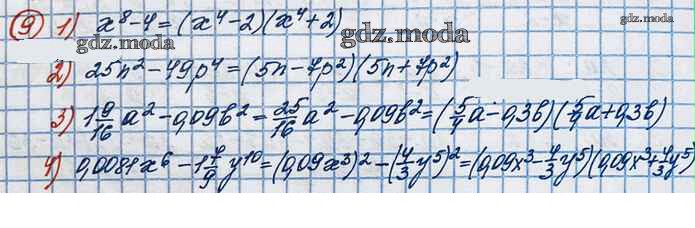 9) 1) x⁸-4=(x⁴-2)(x⁴+2)
gdz.moda gdz.moda gdz.moda
2) 25n²-49p⁴=(5n-7p²)(5n+7p²)
gdz.moda
3) 1 9/16 a²-0,09b²=25/16 a²-0,09b²=(5/4 a-0,3b)(5/4 a+0,3b)
4) 0,0081x⁶-1 7/9 y¹⁰=(0,09x³)²-(4/3 y⁵)²=(0,09x³-4/3 y⁵)(0,09x³+4/3 y⁵)
gdz.moda